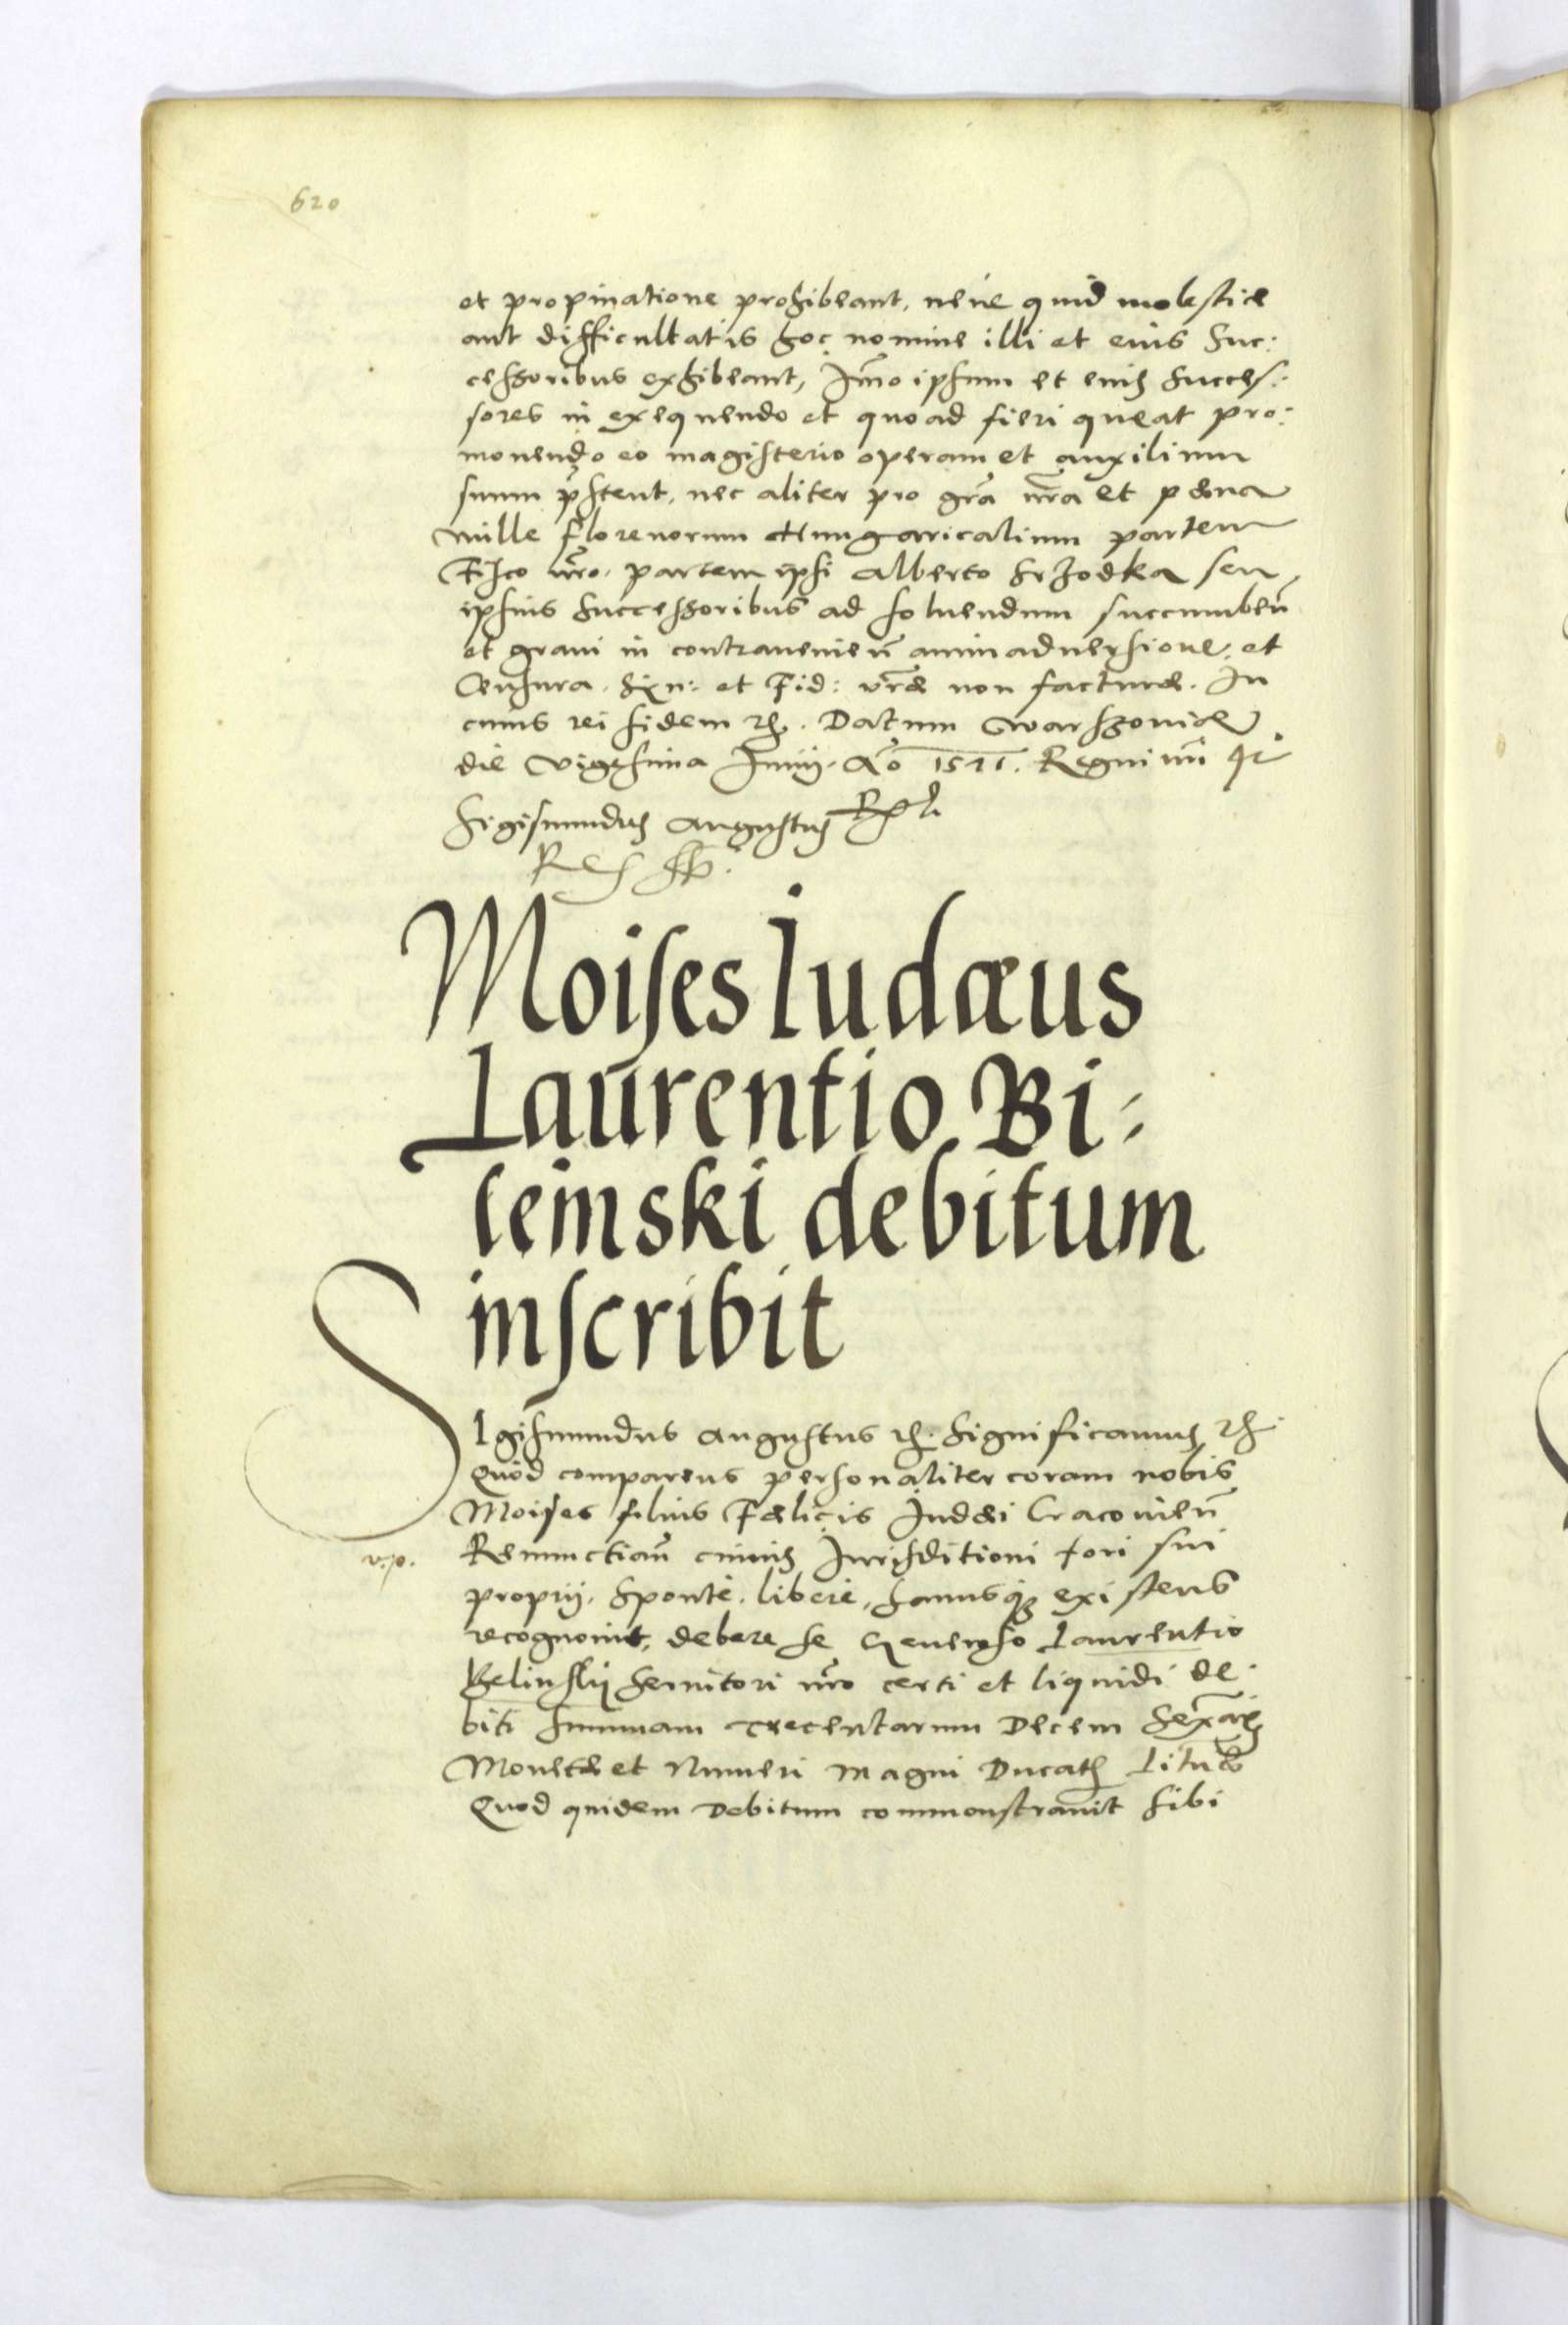 620
et propinatione prohibeant, neúe quid molestiæ
aut difficultatis hoc nomine illi et eius Suc:
cessoribus exhibeant, Im̃o ipsum et eius Succes:
sores in exequendo et quoad fieri queat pro:
mouendo eo magisterio operam et auxilium
suum p̃stent, nec aliter pro gr̃a nr̃a et pœna
mille florenorum Hungaricalium partem
Fisco nr̃o, partem ipsi Alberto Srzodka seu
ipsius Successoribus ad soluendum succumbeñ
et graui in contraueñieñ animaduersione, et
Censura. Syn: et Fid: vr̃æ non facturæ. In
cuius rei fidem etc. Datum Warszouiæ
die Vigesima Iunij. Ao 1571. Regni nr̃i
Sigismundus Augustus Rex
Moises Iudæus
Laurentio Bi:
leinski debitum
inscribit
SIgismundus Augustus etc. Significamus etc.
Quòd comparens personaliter coram nobis
Moises filius Fælicis Iudæi Cracouieñ
v.p.
Renunctiañ cuiuis Iurisditioni fori sui
proprij, Spontè, liberè, sanusq; existens
recognouit, debere se Generoso Laurentio
Belinskij Seruitori nr̃o certi et liquidi de:
biti summam Trecentarum Decem Sexãg
Monetæ et Numeri Magni Ducatus Lituæ
Quod quidem Debitum commonstrauit sibi